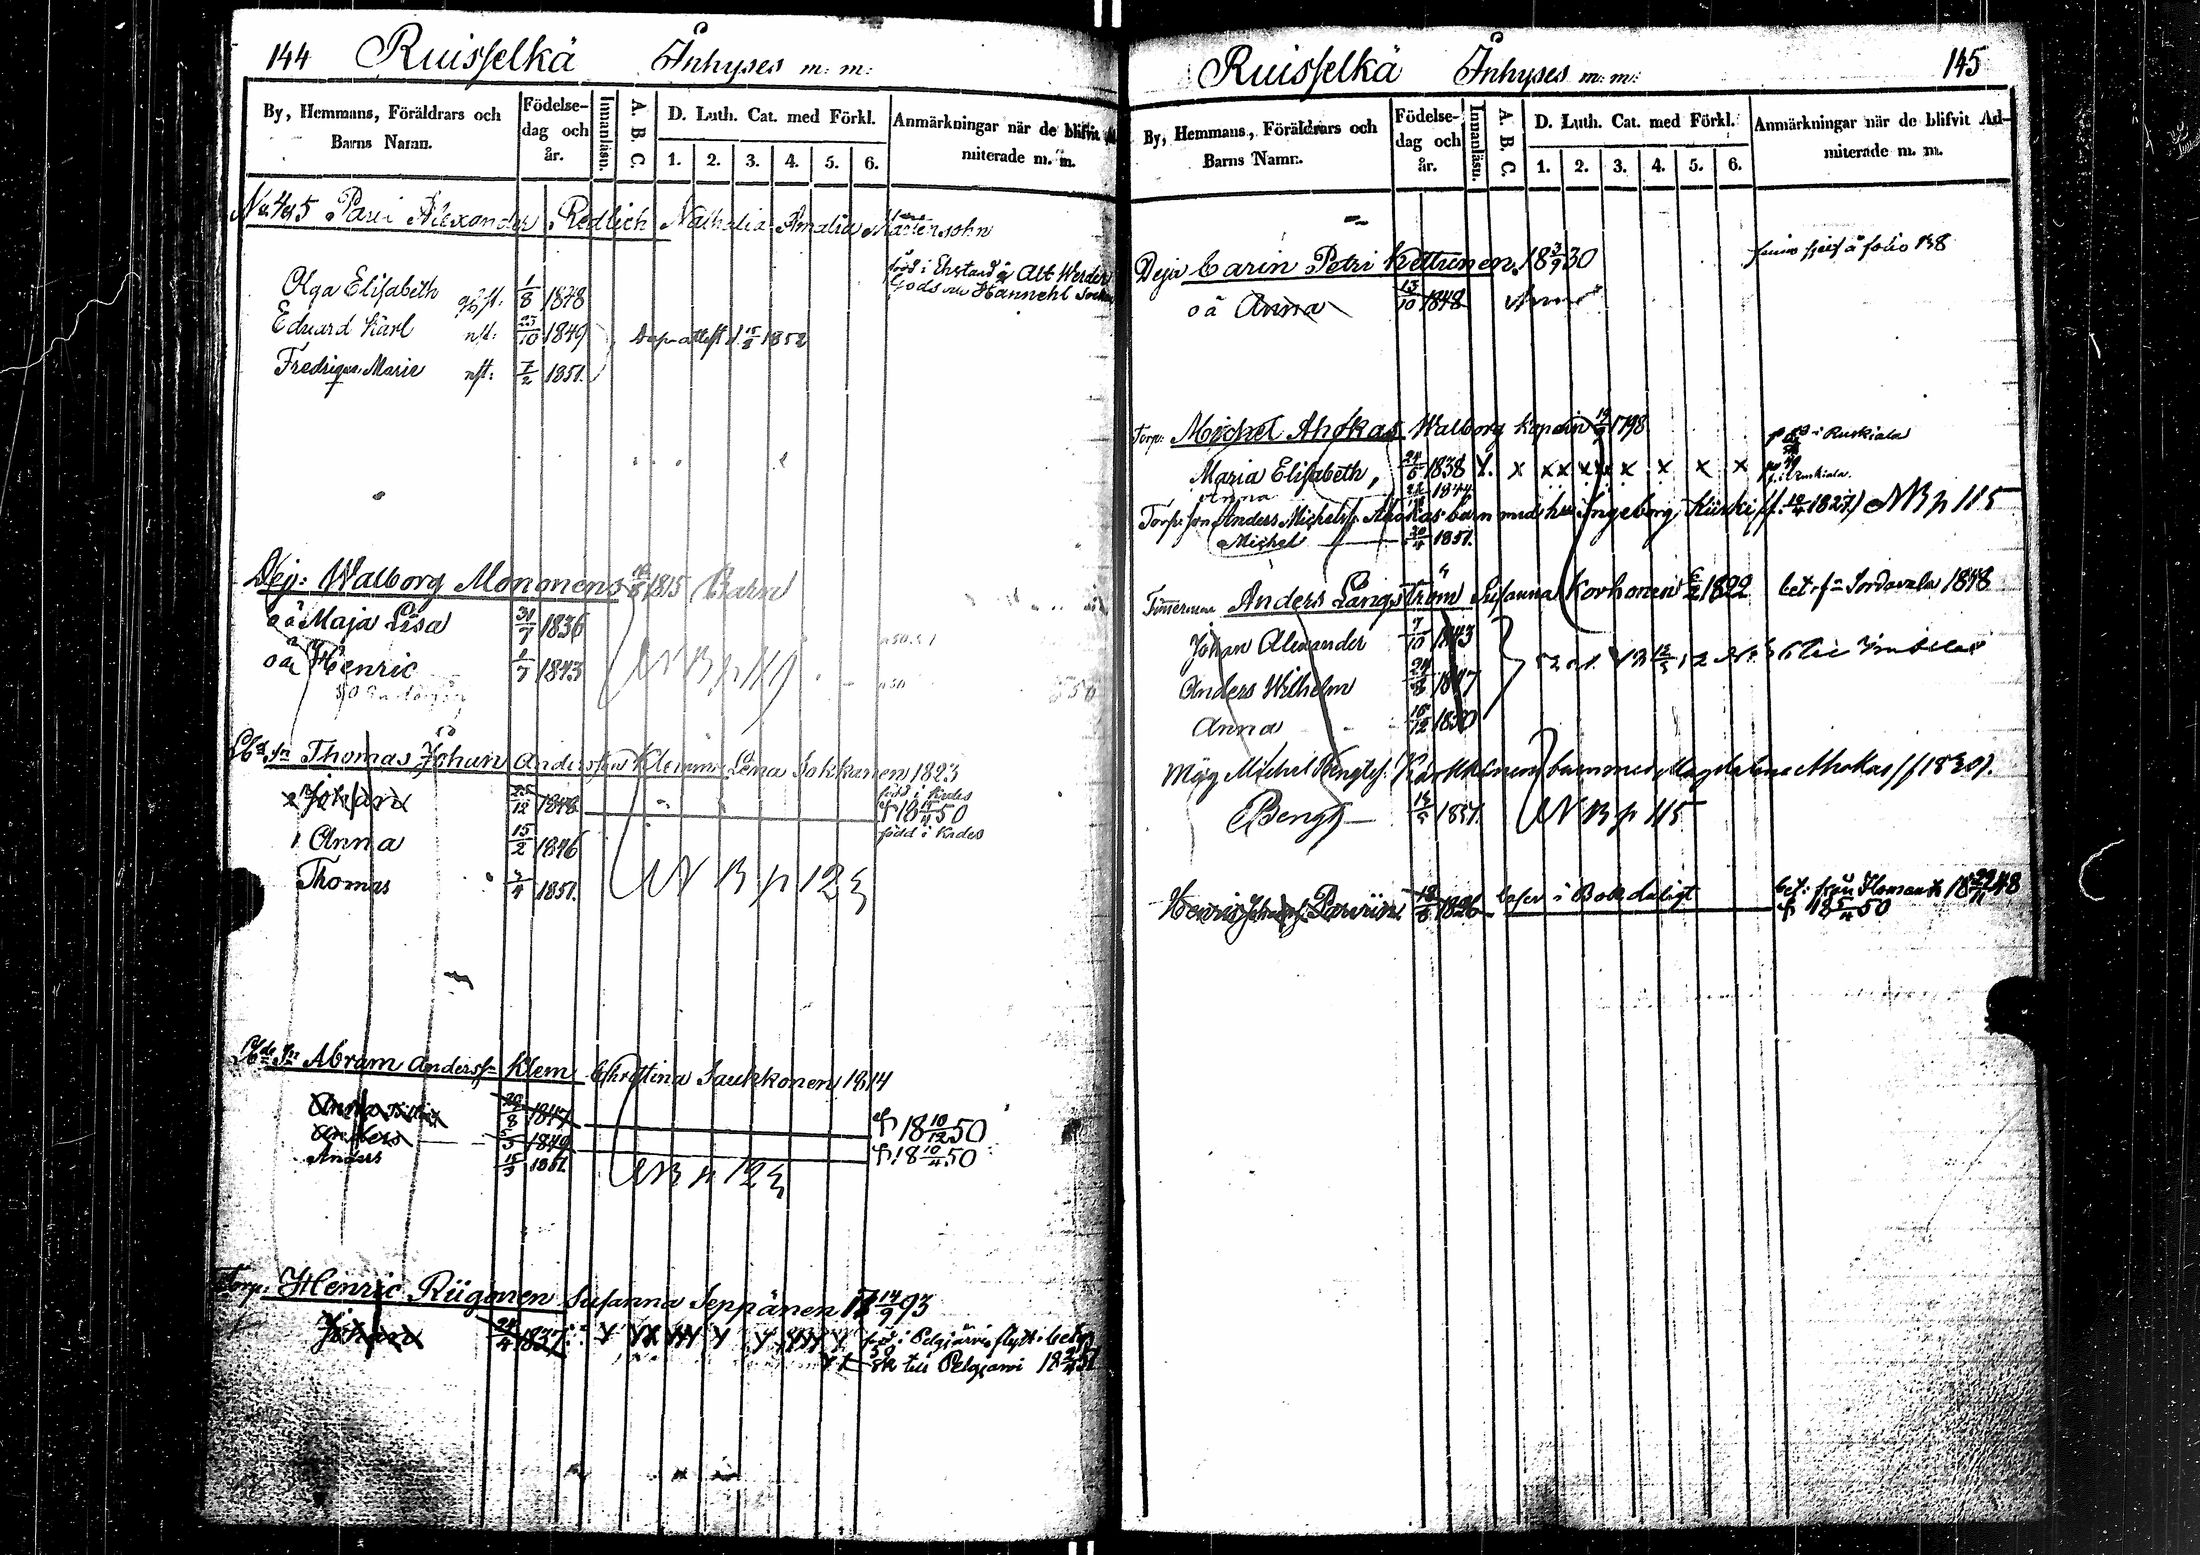 144 Ruisselkä Inhyses m: m:
By, Hemmans, Föräldrars och Barns Namn.
Födelse- dag och år.
Innanläsn.
A. B. C.
D. Luth. Cat. med Förkl.
1. 2. 3. 4. 5. 6.
Anmärkningar när de blifvit Ad- miterade m. m.
No 4 & 5 Alexander Redlich Nathalia Amalia Martensohn
född i Ehstland å Alt Werder
Gods Hannehl Socken
Olga Elisabeth 1/8 1848
Eduard Karl 1849
Fredrique Marie 7/2 1851.
1852
Dej: Walborg Mononens 1815 Barn
oä Maja Lisa 30/7 1836
oä Henric 1/7 1843
Thomas Johan Andersson Klemm Lena Sokkanen 1823
Johan 25/12 1848 född i Kides
1850
Anna 15/2 1846 född i Kides
Thomas 1851. NB p 123
Abram Anderss Klem Christina Saukkonen 1814
Anna 1847 † 18 10/12 50
Anders 1849 † 18 10/4 50
Anders 15/3 1851. NB p 123
Torp: Henric Riigonen Susanna Seppänen 17 14/9 93
Johan 24/4 1837 född i Pelgjärvi flytt
till Pelgjarvi
Ruisselkä Inhyses m: m: 145
By, Hemmans, Föräldrars och Barns Namn.
Födelse- dag och år.
Innanläsn.
A. B. C.
D. Luth. Cat. med Förkl.
1. 2. 3. 4. 5. 6.
Anmärkningar när de blifvit Ad- miterade m. m.
Deja Carin Petri Kettunen 18 3/9 30 å folio 138
oä Anna 13/10 1848
Torp: Michel Ahokas Walborg 1798 i Ruskiala
Maria Elisabeth, 1838 x x x x x x x x
Anna 1844 i Ruskiala.
Torp: son Anders Michelss Ahokas barn med hu Ingeborg Kurki 1827) NB p 115
Michel 20/4 1851.
Timmerman Anders Långström Susanna Korhonen 1822 bet: fr Sordavala 1848
Johan Alexander 7/10 1843
Anders Wilhelm 24/8 1847
Anna 1850
Måg Michel Bengtss. Karkkinens barn med Magdalena Ahokas (f 1830).
Bengt 1851. NB p 115
Henric Johanss. Parviin 1826 i Bok dåligt bet: från Ilomants 18 48
† 18 5/4 50